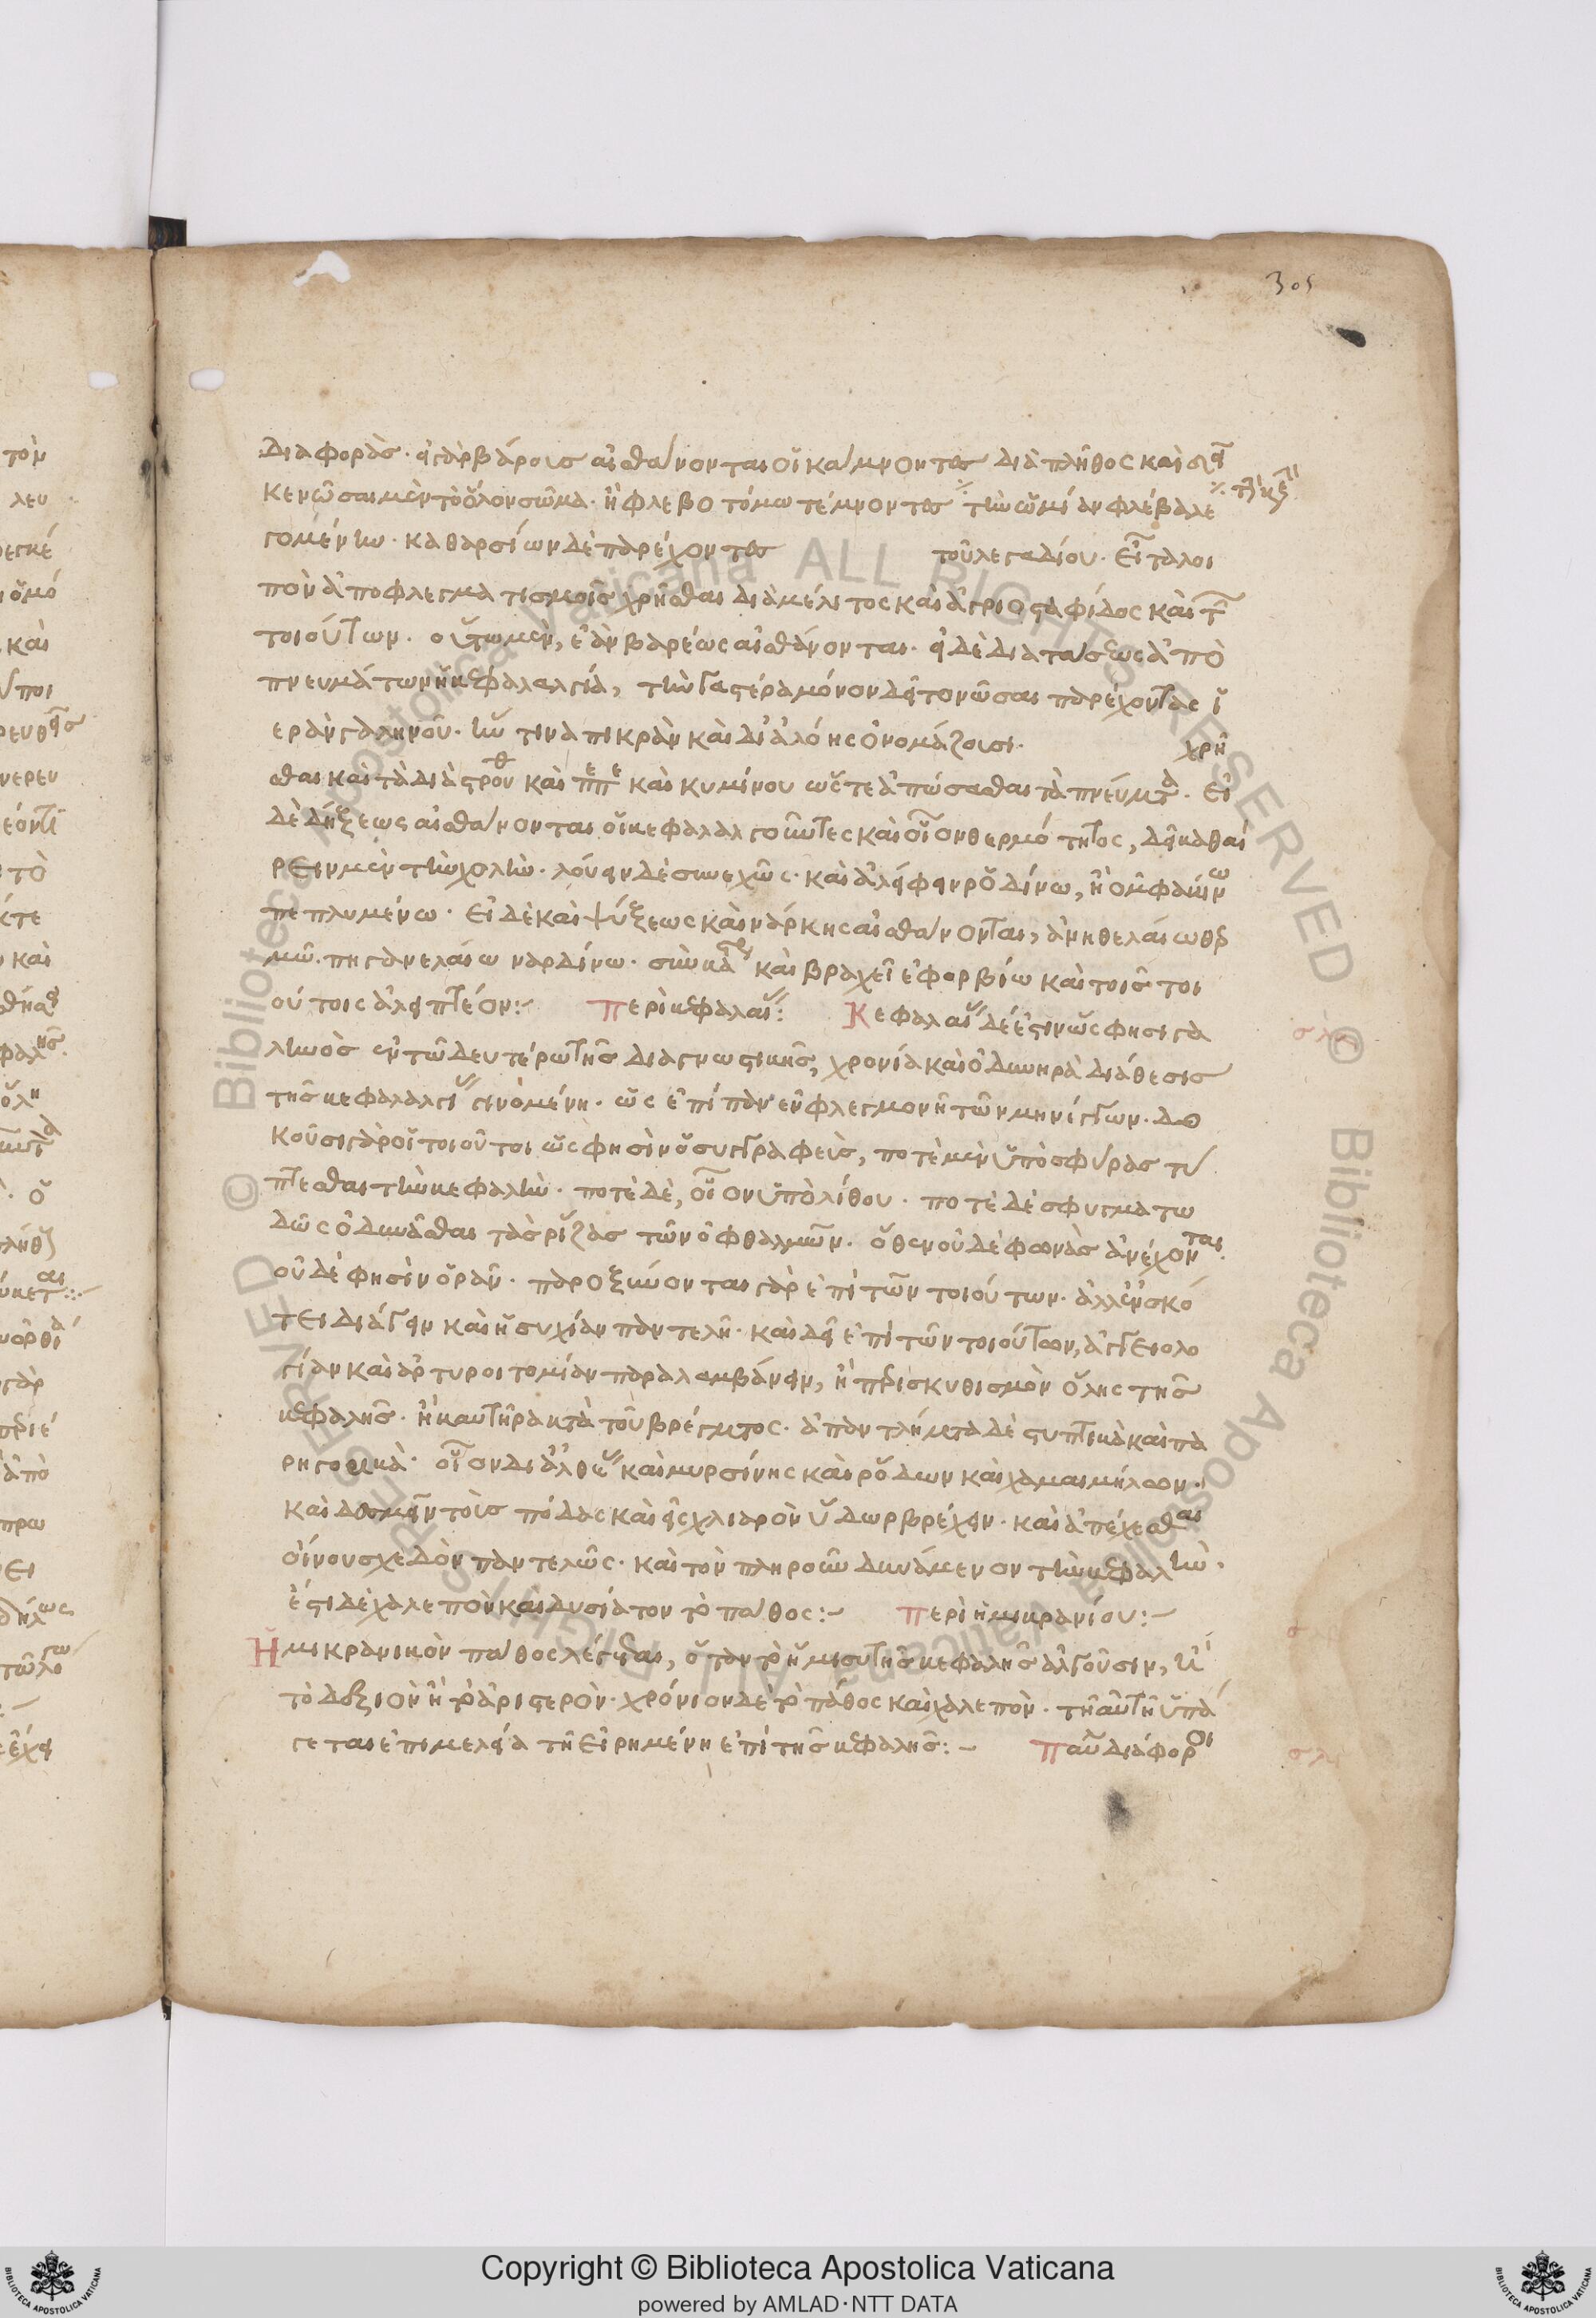 305
διαφοράς. εἰ γὰρ βάρους αἰσθάνονται οἱ κάμνοντες διὰ πλῆθος καὶ
κενῶσαι μὲν τὸ ὅλον σῶμα. ἢ φλεβοτόμω τέμνοντες τὴν ὠμίαν φλέβα λε
γομένην. καθαρσίων δὲ παρέχοντες τοῦ λεγαδίου. εἶτα λοι
πὸν ἀποφλεγματισμοῖς χρῆσθαι διὰ μέλιτος καὶ ἀγριοσταφίδος καὶ τῶν
τοιούτων. οὕτω μὲν, ἐὰν βαρέως αἰσθάνονται. εἰ δὲ διατάσεως ἀπὸ
πνευμάτων ἡ κεφαλαλγία, τὴν γαστέρα μόνον δεῖ κενῶσαι παρέχοντας ἱ
ερὰν γαληνοῦ. ἥν τινα πικρὰν καὶ δι' ἀλόης ὀνομάζουσι. χρῆ
σθαι καὶ τὰ διὰ καὶ καὶ κυμίνου ὥστε ἀπώσασθαι τὰ πνεύματα. εἰ
δὲ δήξεως αἰσθάνονται οἱ κεφαλαλγοῦντες καὶ οἷον θερμότητος, δεῖ καθαί
ρειν μὲν τὴν χολήν. λούειν δὲ συνεχῶς. καὶ ἀλείφειν ῥοδίνω, ἢ ὀμφακίνω
πεπλυμένω. εἰ δὲ καὶ ψύξεως καὶ νάρκης αἰσθάνονται, ἀνηθελαίω θερ
μῶ. πηγανελαίω ναρδίνω. σὺν καὶ βραχεῖ εὐφορβίω καὶ τοῖς τοι
ούτοις ἀλειπτέον:– Περὶ κεφαλαίας: Κεφαλαία δέ ἐστιν ὥς φησι γα
ληνὸς ἐν τῶ δευτέρω τῆς διαγνωστικῆς, χρονία καὶ ὀδυνηρὰ διάθεσις
τῆς κεφαλαλγίας γινομένη. ὡς ἐπίπαν ἐν φλεγμονῆ τῶν μηνίγγων. δο
κοῦσι γὰρ οἱ τοιοῦτοι ὥς φησιν ὁ συγγραφεὺς, ποτὲ μὲν ὑπὸ σφύρας τύ
πτεσθαι τὴν κεφαλήν. ποτὲ δὲ, οἷον ὑπὸ λίθου. ποτὲ δὲ σφυγματω
δῶς ὀδυνᾶσθαι τὰς ῥίζας τῶν ὀφθαλμῶν. ὅθεν οὐδὲ φωνὰς ἀνέχονται
οὐδέ φησιν ὁρᾶν. παροξύνονται γὰρ ἐπὶ τῶν τοιούτων. ἀλλ' ἐν σκό
τει διάγειν καὶ ἡσυχίαν παντελῆ. καὶ δεῖ ἐπὶ τῶν τοιούτων, ἀγγειολο
γίαν καὶ ἀρτυροιτομίαν παραλαμβάνειν, ἢ περισκυθισμὸν ὅλης τῆς
κεφαλῆς. ἢ καυτῆρα κατὰ τοῦ βρέγματος. ἀπαντλήματα δὲ στυπτικὰ καὶ πα
ρηγορικά. οἷον δι' ἀλθέας καὶ μυρσίνης καὶ ῥόδων καὶ χαμαιμήλων.
καὶ δεσμεῖν τοὺς πόδας καὶ εἰς χλιαρὸν ὕδωρ βρέχειν. καὶ ἀπέχεσθαι
οἴνου σχεδὸν παντελῶς. καὶ τῶν πληροῦν δυνάμενον τὴν κεφαλήν.
ἔστι δὲ χαλεπὸν καὶ δυσίατον τὸ πάθος:– Περὶ ἡμικρανίου:–
Ἡμικρανικὸν πάθος λέγεται, ὅταν τὸ ἥμισυ τῆς κεφαλῆς ἀλγοῦσιν, ἢ
τὸ δεξιὸν ἢ τὸ ἀριστερόν. χρόνιον δὲ τὸ πάθος καὶ χαλεπόν. τῆ αὐτῆ ὑπά
γεται ἐπιμελεία τῆ εἰρημένη ἐπὶ τῆς κεφαλῆς:– Παῦ διάφοροι
Copyright © Biblioteca Apostolica Vaticana
powered by AMLAD·NTT DATA